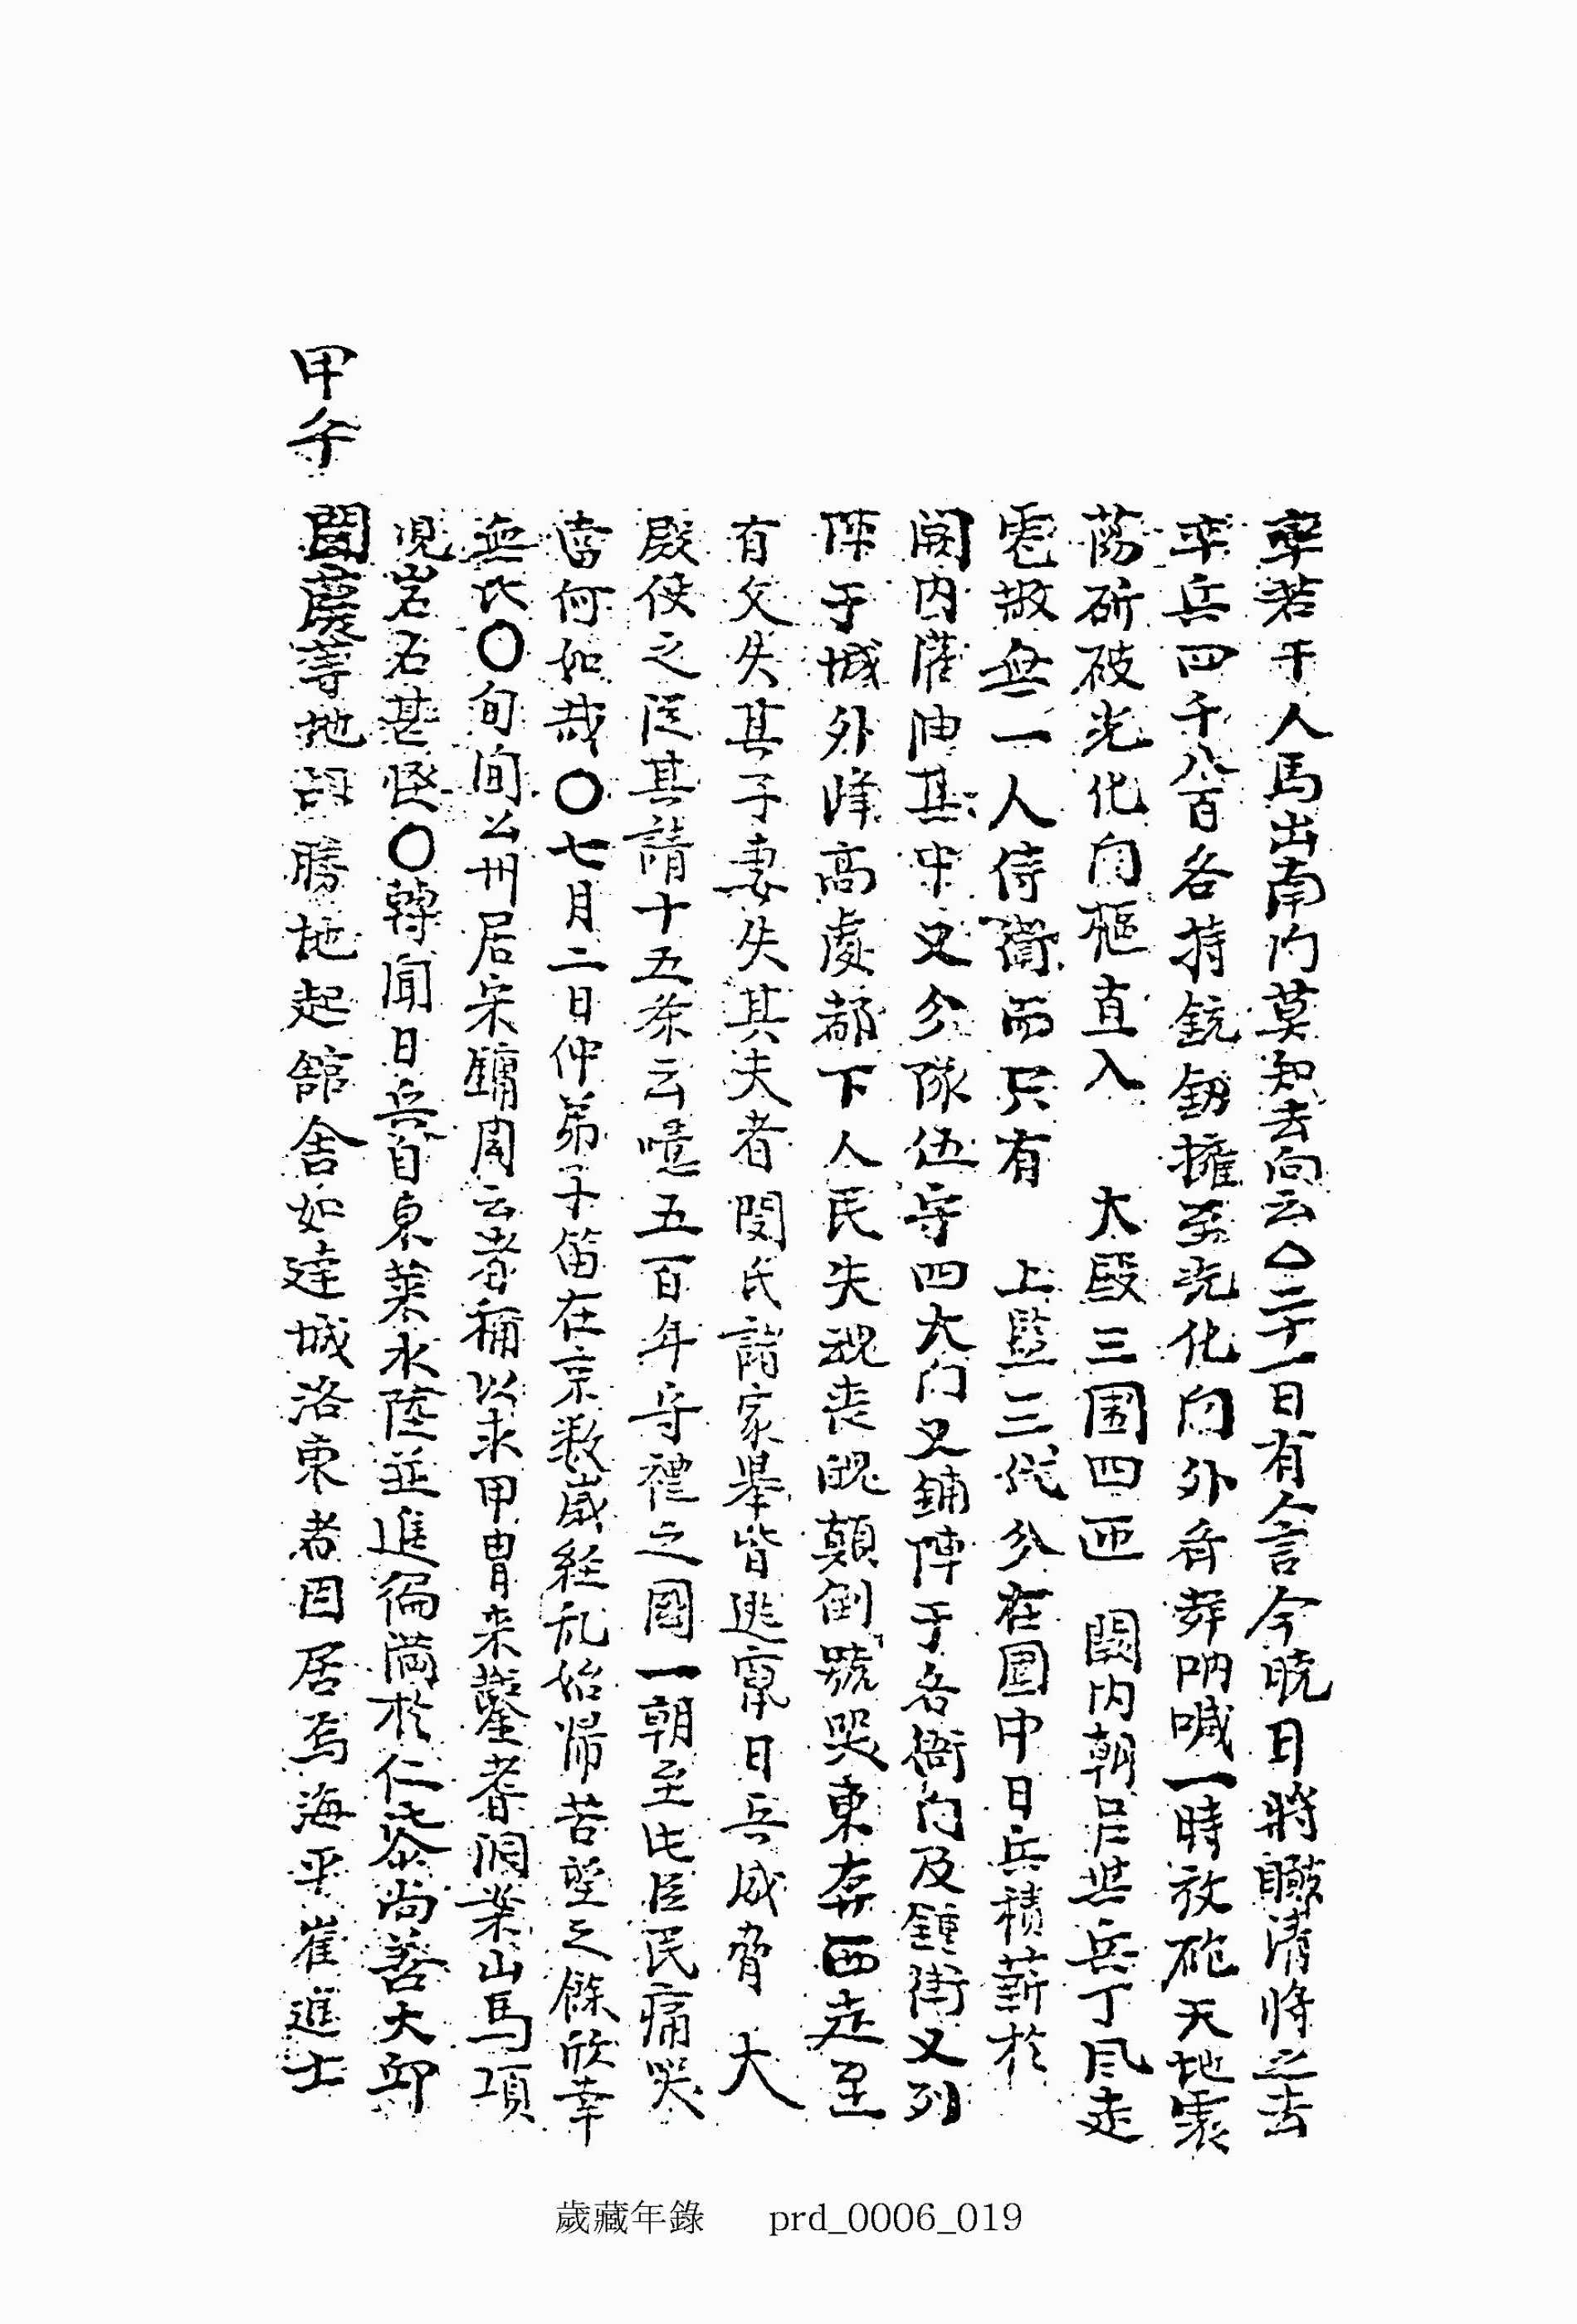 率若干人馬出南門莫知去向云○二十一日有人言今曉日將瞰清將之去
率兵四千八百各持銃釰擁至光化門外斉辭吶喊一時放砲天地震
蕩斫破光化門樞直入 大殿三圍四匝 闕內朝臣與兵丁風走
雹散無一人侍衛而只有 上監三代分在圍中日兵積薪於
闕內灌油其中又分隊伍守四大門又鋪陣于各衙門及鍾街又列
陣于城外峰高處都下人民失魂喪魄顚倒號哭東奔西走至
有父失其子妻失其夫者閔氏諸家擧皆逃竄日兵威脅 大
殿使之從其請十五條云噫五百年守禮之國一朝至此臣民痛哭
當何如哉○七月二日仲弟子笛在京数歲経乱始歸苦望之餘欣幸
無比○旬間公州居宋鏞周云者稱以求甲冑来鑿耆洞業山馬項
峴岩石甚怪○轉聞日兵自東萊水陸並進徧滿於仁岺尚善大邱
聞慶等地胡勝地起舘舍如達城洛東者因居焉海平崔進士
甲午
歲藏年錄 prd_0006_019